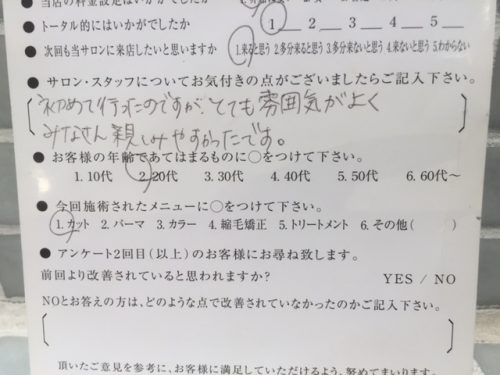 ● トータル的にはいかがでしたか 1__ 2__ 3__ 4__ 5__
● 次回も当サロンに来店したいと思いますか 1.来ると思う 2.多分来ると思う 3.多分来ないと思う 4.来ないと思う 5.わからない
● サロン・スタッフについてお気付きの点がございましたらご記入下さい。
初めて行ったのですが、とても雰囲気がよく
みなさん親しみやすかったです。
● お客様の年齢であてはまるものに○をつけて下さい。
1.10代 2.20代 3.30代 4.40代 5.50代 6.60~
● 今回施術されたメニューに○をつけて下さい。
1.カット 2.パーマ 3.カラー 4.縮毛矯正 5.トリートメント 6.その他( )
● アンケート2回目(以上)のお客様にお尋ね致します。
前回より改善されていると思われますか? YES / NO
NOとお答えの方は、どのような点で改善されていなかったのかご記入下さい。
頂いたご意見を参考に、お客様に満足していただけるよう、努めてまいります。